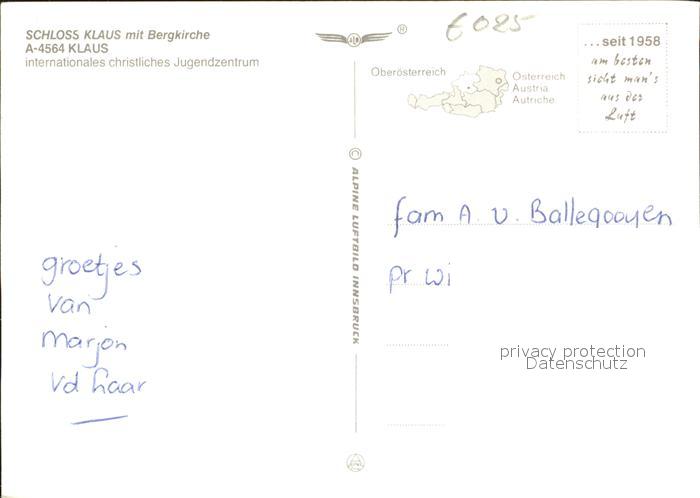 SCHLOSS KLAUS mit Bergkirche
A-4564 KLAUS
internationales christliches Jugendzentrum
®
€ 025
Oberösterreich
Österreich
Austria
Autriche
...seit 1958
am besten
sieht man's
aus der
Luft
© ALPINE LUFTBILD INNSBRUCK
groetjes
van
Marjon
vd haar
fam A. v. Ballegooyen
pr wi
privacy protection
Datenschutz